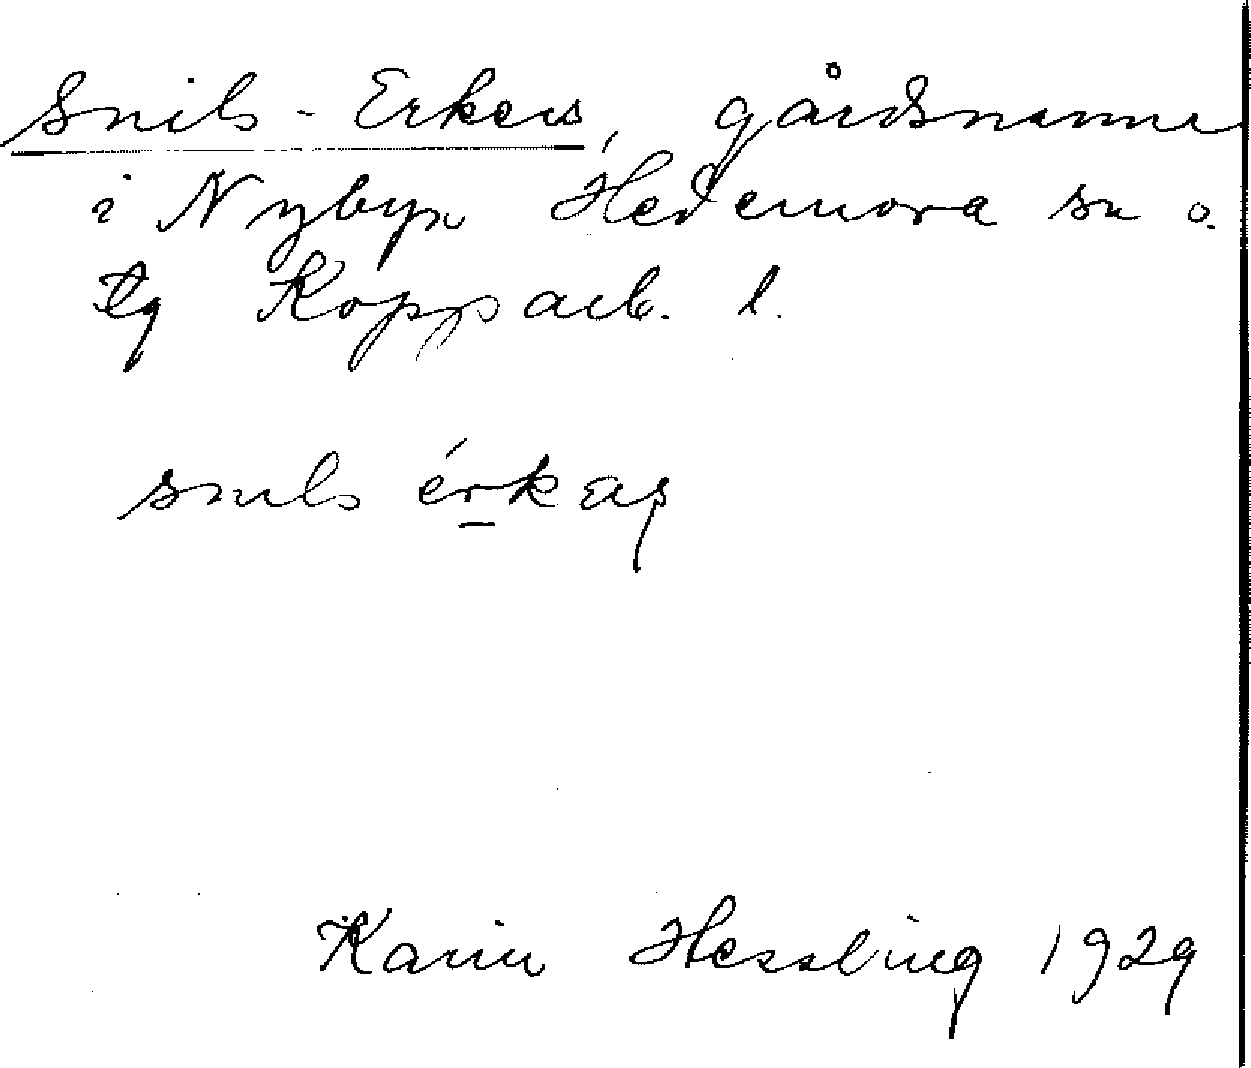 Snils-Erkers, gårdsnamn
i Nybyn Hedemora sn o.
tg Kopparb. l.
snils érkaş
Karin Hessling 1929